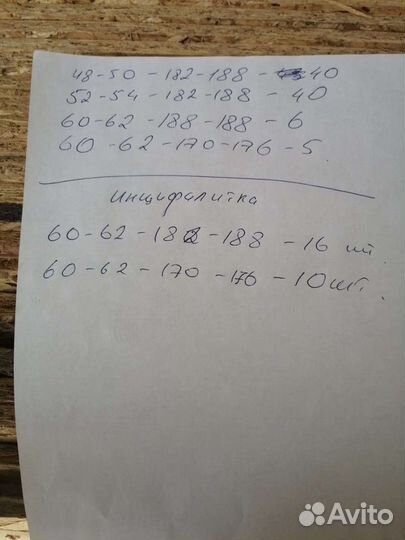 48-50-182-188-40
52-54-182-188-40
60-62-188-188-6
60-62-170-176-5
Инцифалитка
60-62-182-188-16 шт.
60-62-170-176-10 шт.
Avito